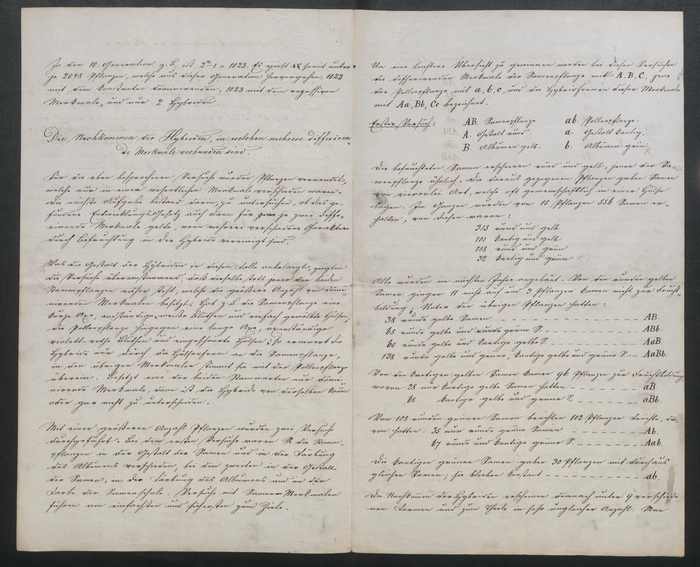 In der 10. Generation z. B. ist 2ⁿ-1 = 1023. Es giebt somit unter
je 2048 Pflanzen, welche aus dieser Generation hervorgehen, 1023
mit dem constanten dominirenden, 1023 mit dem recessiven
Merkmale, und nur 2 Hybriden.
Die Nachkommen der Hybriden, in welchen mehrere differiren-
de Merkmale verbunden sind.
Für die eben besprochenen Versuche wurden Pflanzen verwendet,
welche nur in einem wesentlichen Merkmale verschieden waren.
Die nächste Aufgabe bestand darin, zu untersuchen, ob das ge-
fundene Entwicklungsgesetz auch dann für je zwei diffe-
rirende Merkmale gelte, wenn mehrere verschiedene Charaktere
durch Befruchtung in der Hybride vereinigt sind.
Was die Gestalt der Hybriden in diesem Falle anbelangt, zeigten
die Versuche übereinstimmend, daß dieselbe stets jener der beiden
Stammpflanzen näher steht, welche die größere Anzahl von domi-
nirenden Merkmalen besitzt. Hat z. B. die Samenpflanze eine
kurze Axe, endständige, weiße Blüthen und einfach gewölbte Hülsen;
die Pollenpflanze hingegen eine lange Axe, axenständige
violett-rothe Blüthen und eingeschnürte Hülsen; so erinnert die
Hybride nur durch die Hülsenform an die Samenpflanze,
in den übrigen Merkmalen stimmt sie mit der Pollenpflanze
überein. Besitzt eine der beiden Stammarten nur domi-
nirende Merkmale, dann ist die Hybride von derselben kaum
oder gar nicht zu unterscheiden.
Mit einer größeren Anzahl Pflanzen wurden zwei Versuche
durchgeführt. Bei dem ersten Versuche waren die Stamm-
pflanzen in der Gestalt der Samen und in der Färbung
des Albumens verschieden; bei dem zweiten in der Gestalt
der Samen, in der Färbung des Albumens und in der
Farbe der Samenschale. Versuche mit Samen-Merkmalen
führen am einfachsten und sichersten zum Ziele.
Um eine leichtere Übersicht zu gewinnen, werden bei diesen Versuchen
die differirenden Merkmale der Samenpflanze mit A, B, C, jene
der Pollenpflanze mit a, b, c und die Hybridformen dieser Merkmale
mit Aa, Bb, Cc bezeichnet.
Erster Versuch: AB Samenpflanze ab Pollenpflanze
A. Gestalt rund a. Gestalt kantig.
B. Albumen gelb. b. Albumen grün.
Die befruchteten Samen erschienen rund und gelb, jenen der Sa-
menpflanze ähnlich. Die daraus gezogenen Pflanzen gaben Samen
von viererlei Art, welche oft gemeinschaftlich in einer Hülse
lagen. Im Ganzen wurden von 15 Pflanzen 556 Samen er-
halten, von diesen waren:
315 rund und gelb
101 kantig und gelb
108 rund und grün
32 kantig und grün
Alle wurden im nächsten Jahre angebaut. Von den runden gelben
Samen gingen 11 nicht auf und 3 Pflanzen kamen nicht zur Frucht-
bildung. Unter den übrigen Pflanzen hatten:
38 runde gelbe Samen AB.
65 runde gelbe und runde grüne S. ABb.
60 runde gelbe und kantige gelbe S. AaB.
138 runde gelbe und grüne, kantige gelbe und grüne S. AaBb.
Von den kantigen gelben Samen kamen 96 Pflanzen zur Fruchtbildung,
wovon 28 nur kantige gelbe Samen hatten aB
68 kantige gelbe und grüne S. aBb.
Von 108 runden grünen Samen brachten 102 Pflanzen Früchte, da-
von hatten: 35 nur runde grüne Samen Ab.
67 runde und kantige grüne S. Aab.
Die kantigen grünen Samen gaben 30 Pflanzen mit durchaus
gleichen Samen; sie blieben constant ab.
Die Nachkommen der Hybriden erschienen demnach unter 9 verschiede-
nen Formen und zum Theile in sehr ungleicher Anzahl. Man